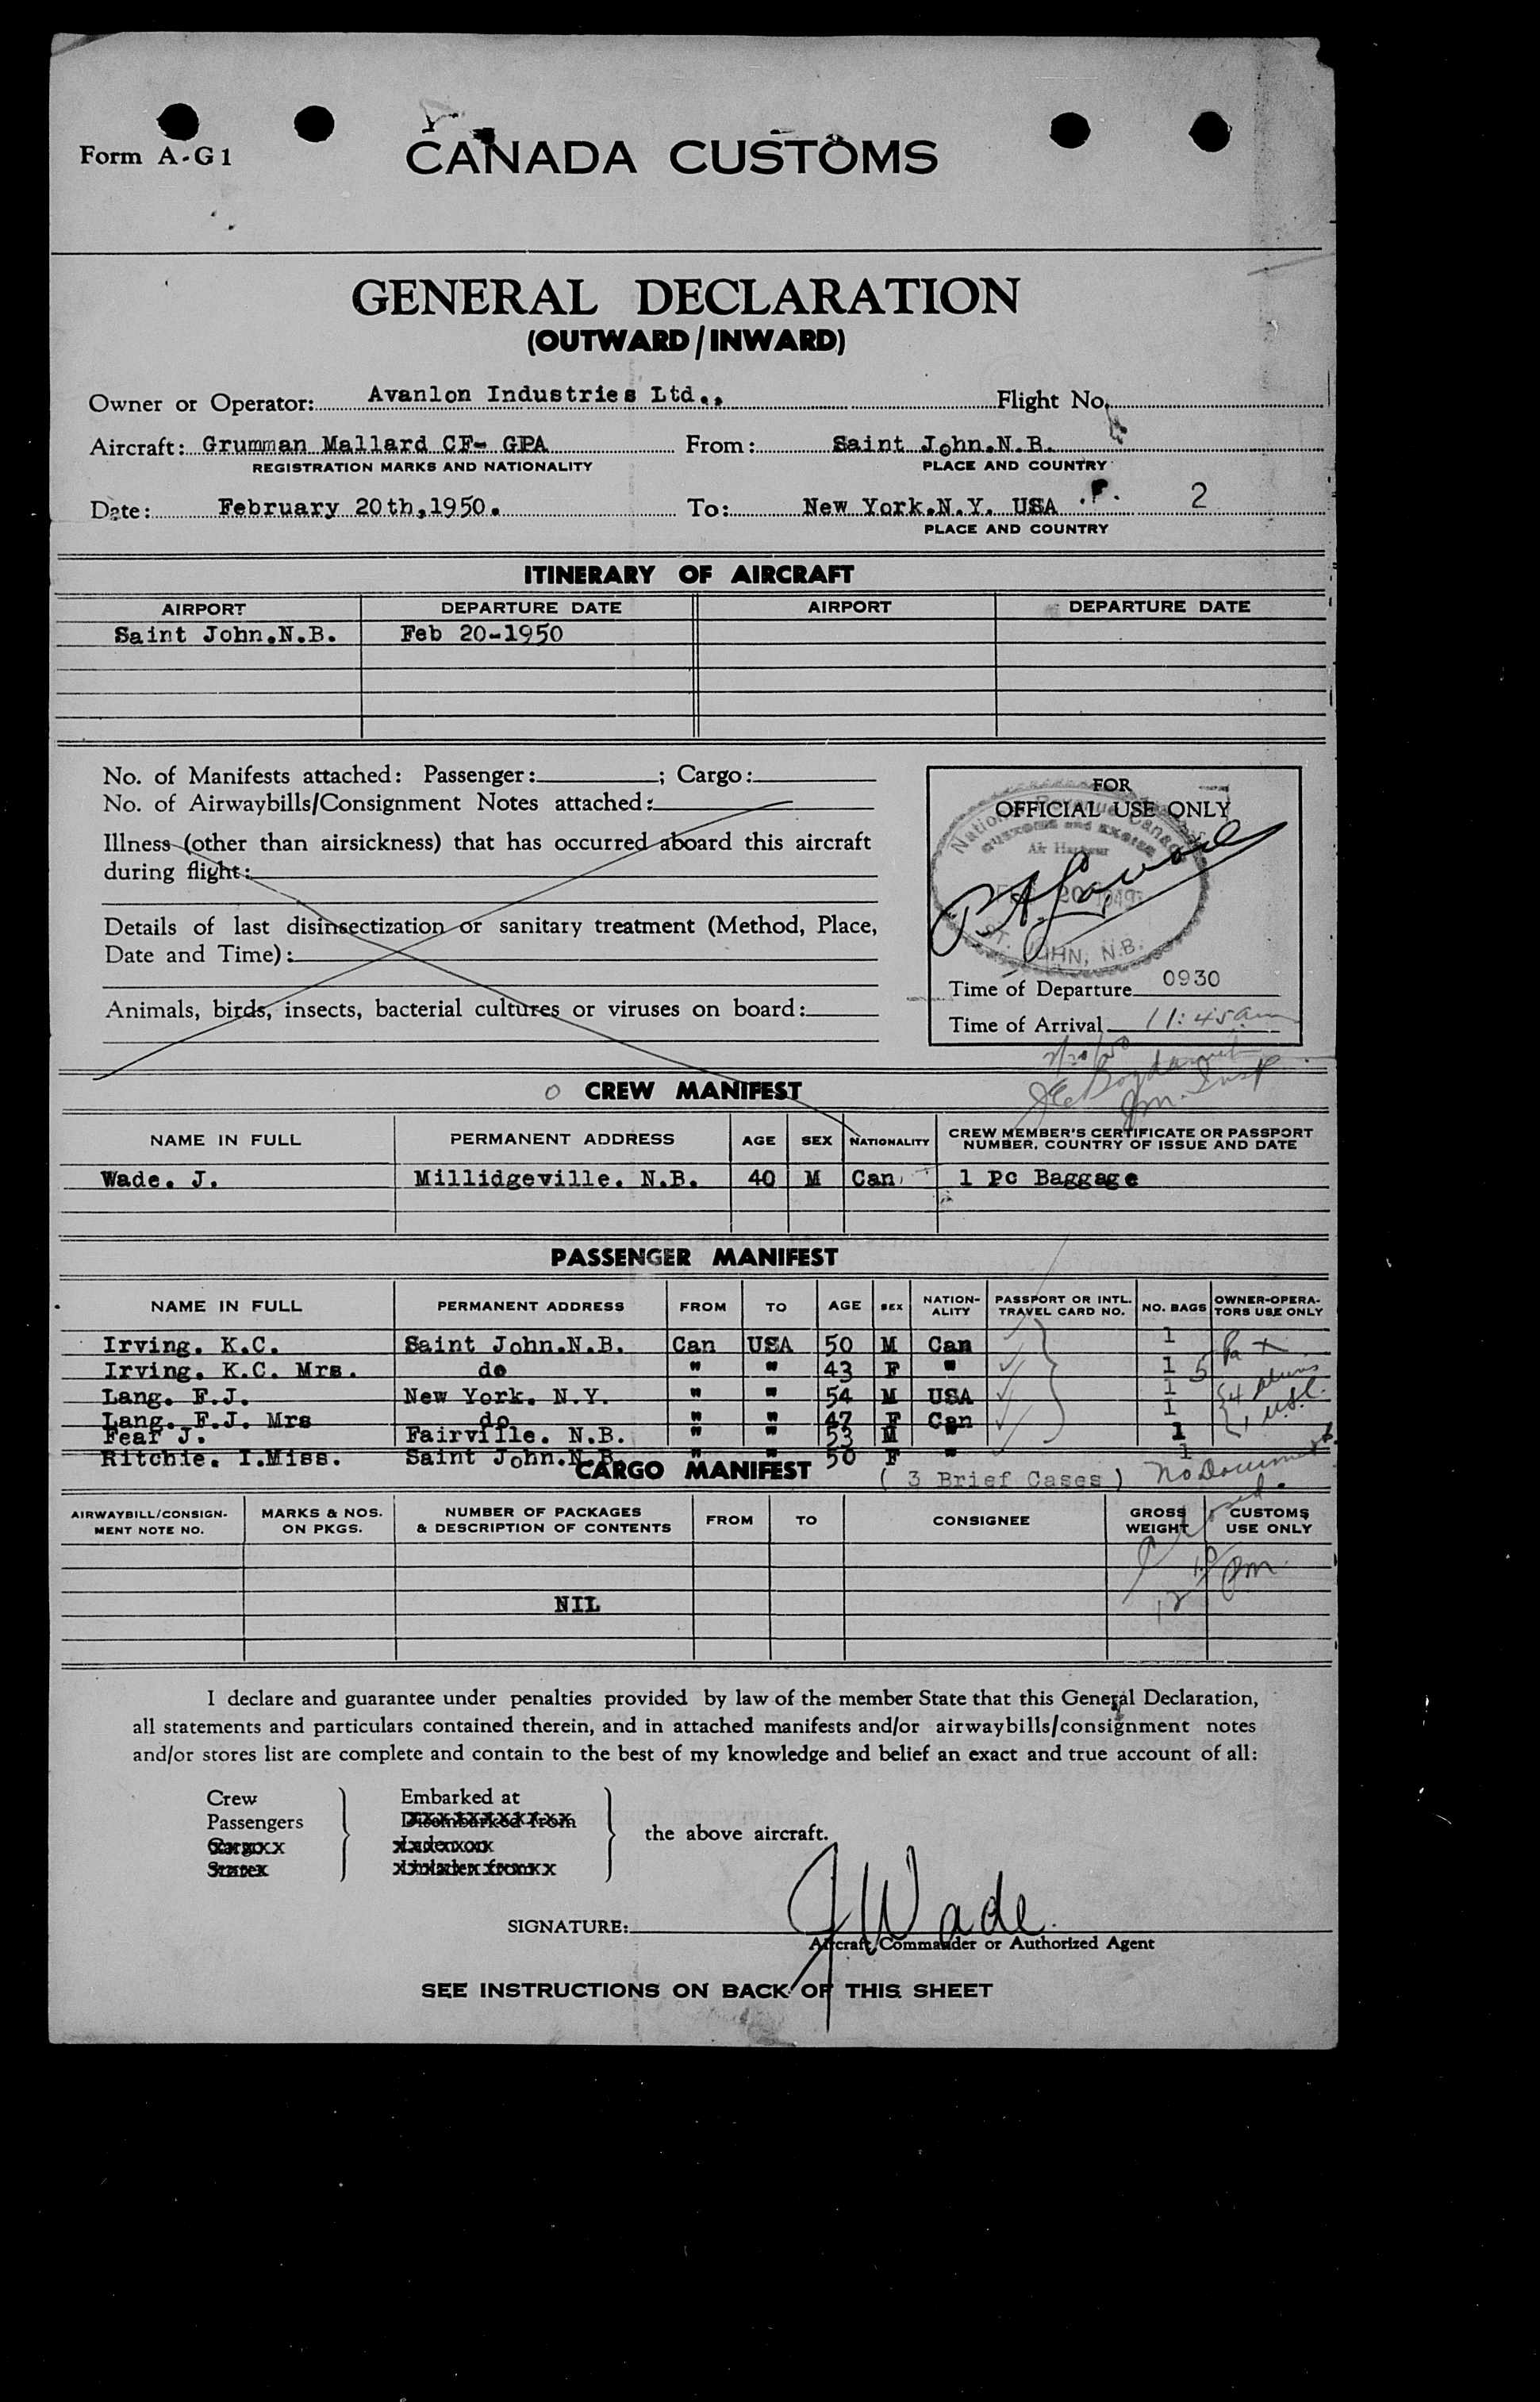 Form A-G1
CANADA CUSTOMS
GENERAL DECLARATION
(OUTWARD/INWARD)
Owner or Operator: Avanlon Industries Ltd.. Flight No.
Aircraft: Grumman Mallard CF- GPA From: Saint John.N.B.
REGISTRATION MARKS AND NATIONALITY PLACE AND COUNTRY
Date: February 20th,1950. To: New York.N.Y. USA 2
PLACE AND COUNTRY
ITINERARY OF AIRCRAFT
AIRPORT DEPARTURE DATE AIRPORT DEPARTURE DATE
Saint John.N.B. Feb 20-1950
No. of Manifests attached: Passenger: ; Cargo:
No. of Airwaybills/Consignment Notes attached:
Illness (other than airsickness) that has occurred aboard this aircraft
during flight:
Details of last disinsectization or sanitary treatment (Method, Place,
Date and Time):
Animals, birds, insects, bacterial cultures or viruses on board:
FOR
OFFICIAL USE ONLY
National Revenue Canada
CUSTOMS and EXCISE
Air Harbour
20
ST. JOHN, N.B.
Time of Departure 0930
Time of Arrival 11:45 am
2/20/50
Im. Insp.
CREW MANIFEST
NAME IN FULL PERMANENT ADDRESS AGE SEX NATIONALITY CREW MEMBER'S CERTIFICATE OR PASSPORT NUMBER, COUNTRY OF ISSUE AND DATE
Wade. J. Millidgeville. N.B. 40 M Can 1 pc Baggage
PASSENGER MANIFEST
NAME IN FULL PERMANENT ADDRESS FROM TO AGE SEX NATION-ALITY PASSPORT OR INTL. TRAVEL CARD NO. NO. BAGS OWNER-OPERA-TORS USE ONLY
Irving. K.C. Saint John.N.B. Can USA 50 M Can 1
Irving. K.C. Mrs. do " " 43 F " 1 5
Lang. F.J. New York. N.Y. " " 54 M USA 1 4
Lang. F.J. Mrs do " " 47 F Can 1 1
Fear J. Fairville. N.B. " " 53 M " 1
Ritchie. I.Miss. Saint John.N.B. " " 50 F " 1
CARGO MANIFEST ( 3 Brief Cases ) No Document
AIRWAYBILL/CONSIGN-MENT NOTE NO. MARKS & NOS. ON PKGS. NUMBER OF PACKAGES & DESCRIPTION OF CONTENTS FROM TO CONSIGNEE GROSS WEIGHT CUSTOMS USE ONLY
NIL
I declare and guarantee under penalties provided by law of the member State that this General Declaration,
all statements and particulars contained therein, and in attached manifests and/or airwaybills/consignment notes
and/or stores list are complete and contain to the best of my knowledge and belief an exact and true account of all:
Crew Embarked at
Passengers Disembarked from
Cargo Laden on the above aircraft.
Stores Unladen from
SIGNATURE: J Wade
Aircraft Commander or Authorized Agent
SEE INSTRUCTIONS ON BACK OF THIS SHEET